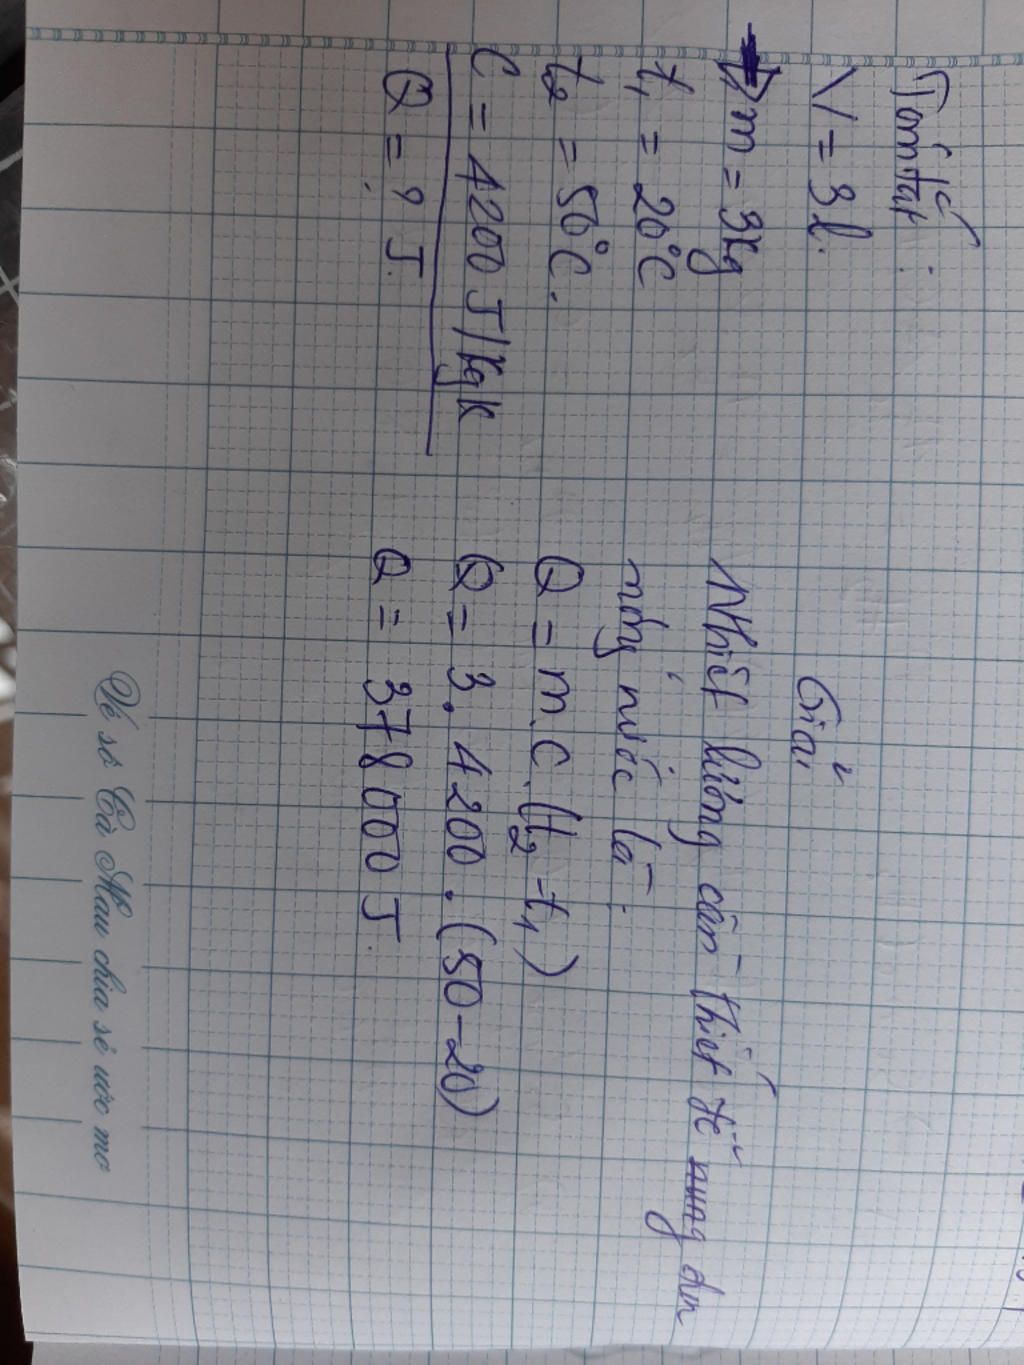 Tóm tắt :
V = 3l.
⇒ m = 3kg
t₁ = 20°C
t₂ = 50°C.
C = 4200 J/kgK
Q = ? J.
Giải
Nhiệt lượng cần thiết để nung đun
nóng nước là :
Q = m.C.(t₂ - t₁)
Q = 3. 4200 . (50 - 20)
Q = 378 000 J.
Vé số Cà Mau chia sẻ ước mơ